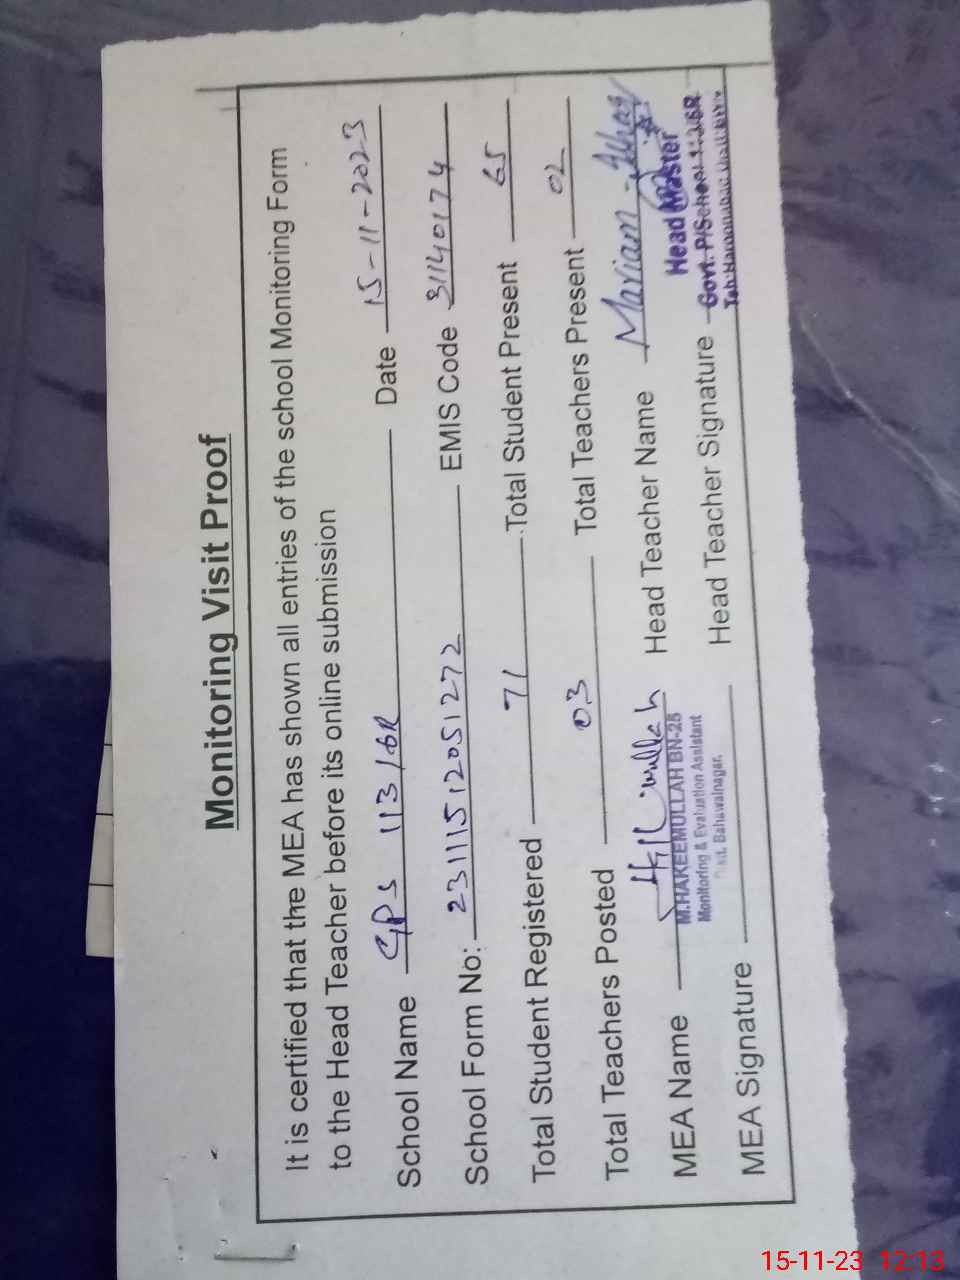 Monitoring Visit Proof
It is certified that the MEA has shown all entries of the school Monitoring Form
to the Head Teacher before its online submission
School Name GPS 113/6R Date 15-11-2023
School Form No: 23111512051272 EMIS Code 31140174
Total Student Registered 71 Total Student Present 65
Total Teachers Posted 03 Total Teachers Present 02
MEA Name Head Teacher Name Mariam
M.HAKEEMULLAH BN-25
Monitoring & Evaluation Assistant
Bahawalnagar.
Head Master
MEA Signature Head Teacher Signature Govt. P/School
15-11-23 12:13